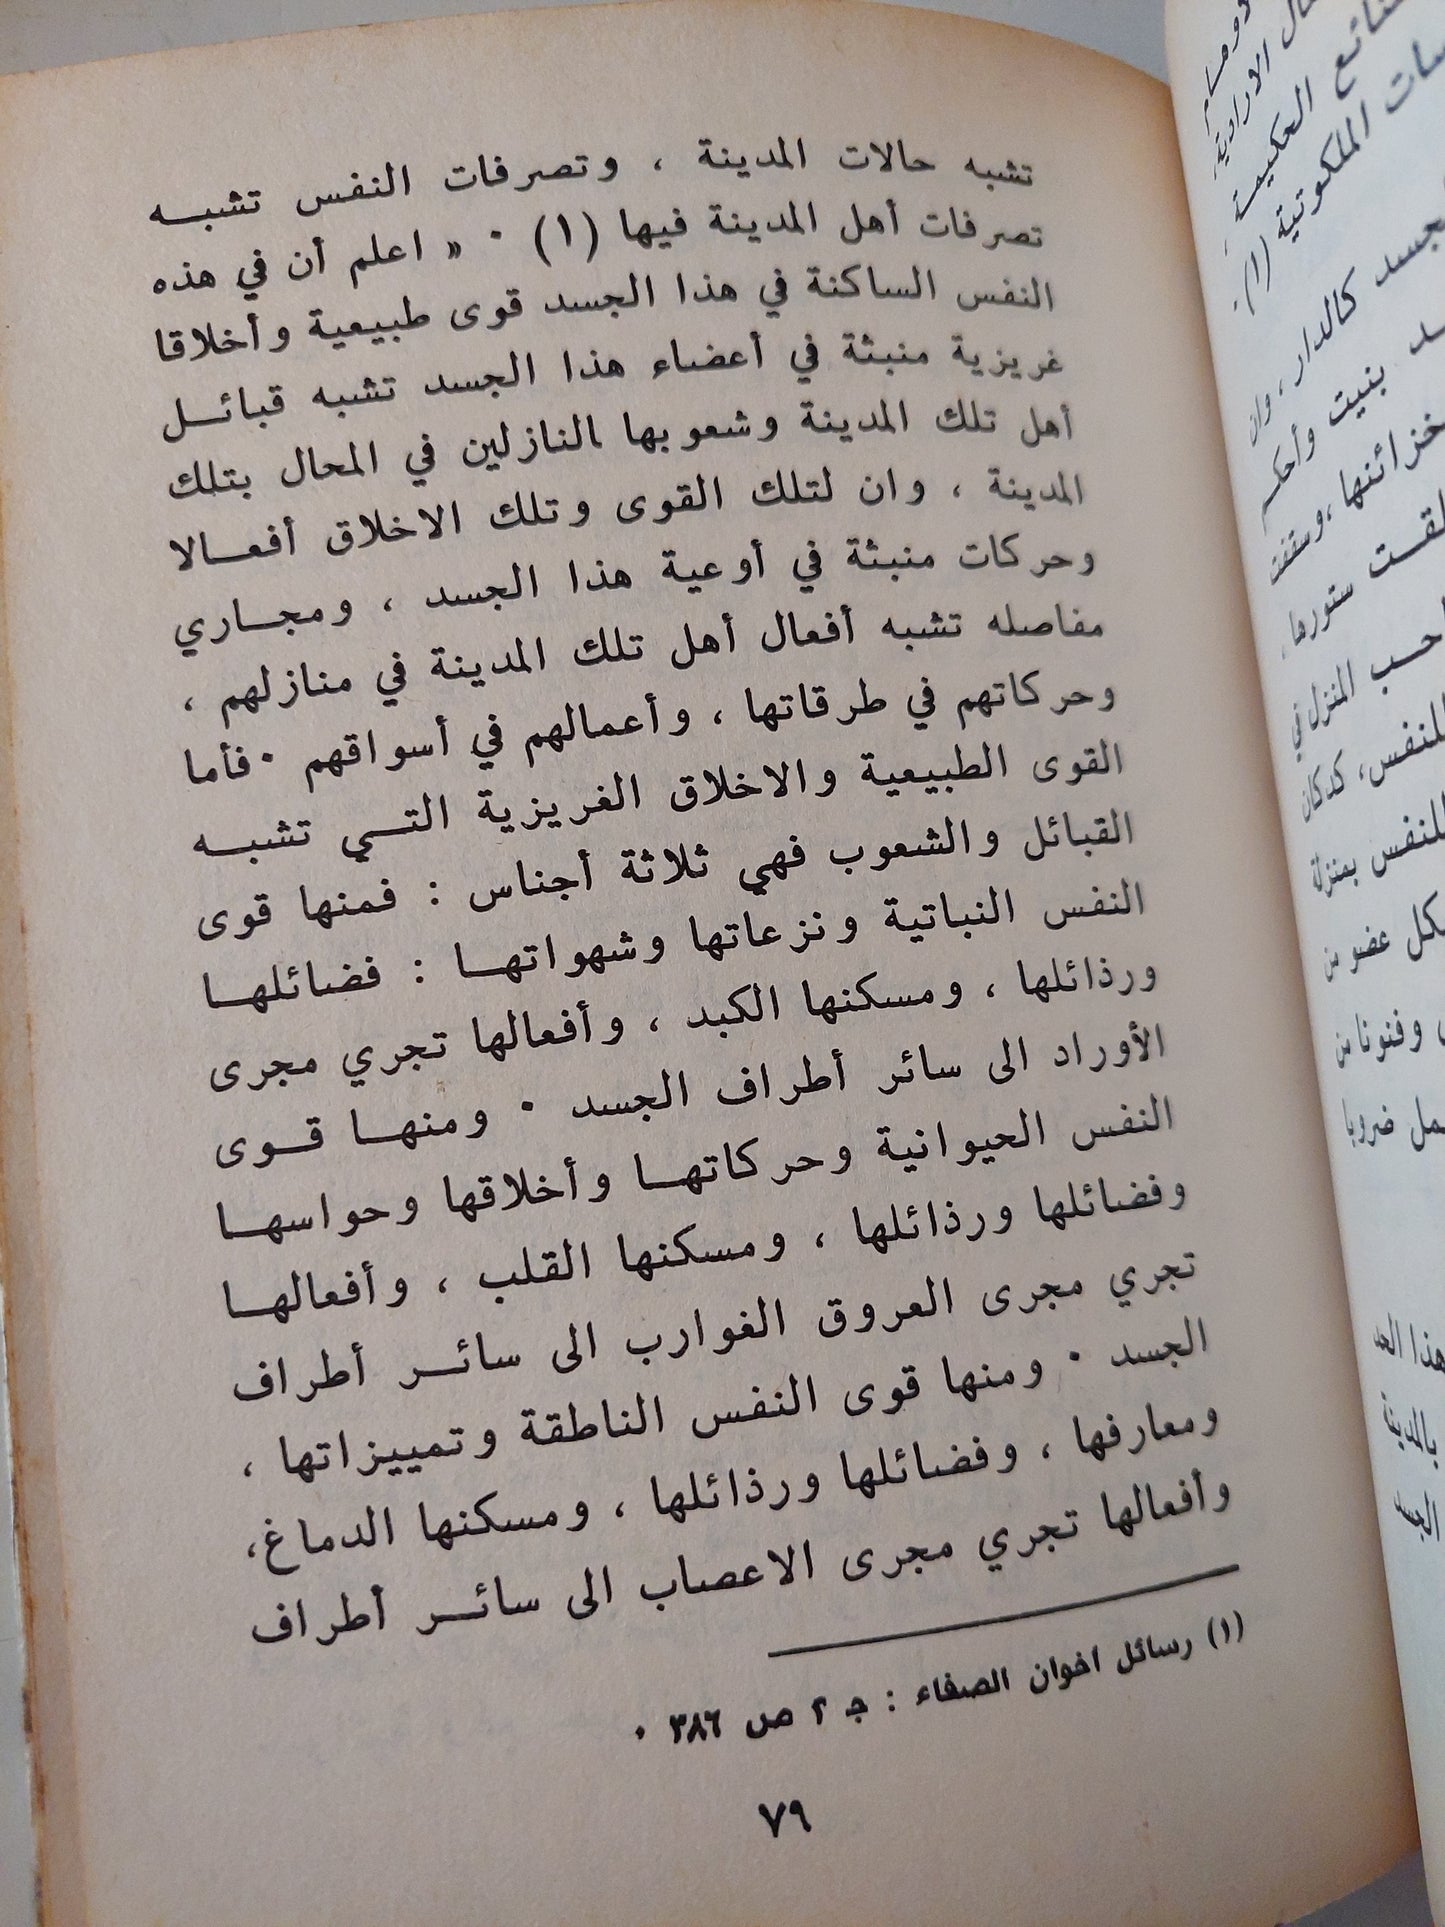 تشبه حالات المدينة ، وتصرفات النفس تشبــه
تصرفات أهل المدينة فيها (١) ٠ « اعلم أن في هذه
النفس الساكنة في هذا الجسد قوى طبيعية وأخلاقا
غريزية منبثة في أعضاء هذا الجسد تشبه قبائــل
أهل تلك المدينة وشعوبها النازلين في المحال بتلك
المدينة ، وان لتلك القوى وتلك الاخلاق أفعــالا
وحركات منبثة في أوعية هذا الجسد ، ومجــاري
مفاصله تشبه أفعال أهل تلك المدينة في منازلهم ،
وحركاتهم في طرقاتها ، وأعمالهم في أسواقهم ٠ فأما
القوى الطبيعية والاخلاق الغريزية التــي تشبــه
القبائل والشعوب فهي ثلاثة أجناس : فمنها قوى
النفس النباتية ونزعاتها وشهواتهــا : فضائلهــا
ورذائلها ، ومسكنها الكبد ، وأفعالها تجري مجرى
الأوراد الى سائر أطراف الجسد ٠ ومنهــا قــوى
النفس الحيوانية وحركاتهــا وأخلاقها وحواسهــا
وفضائلها ورذائلها ، ومسكنها القلب ، وأفعالهــا
تجري مجرى العروق الغوارب الى سائــر أطراف
الجسد ٠ ومنها قوى النفس الناطقة وتمييزاتها ،
ومعارفها ، وفضائلها ورذائلها ، ومسكنها الدماغ،
وأفعالها تجري مجرى الاعصاب الى سائــر أطراف
(١) رسائل اخوان الصفاء : ج ٢ ص ٣٨٦ ٠
٧٩
الارادية
الحكيمة ،
الملكوتية (١) ٠
كالدار ، وان
بنيت وأحكــم
خزائنها ، وسقفت
ستورها ،
المنزل في
للنفس، كدكان
للنفس بمنزلة
كل عضو من
وفنونا من
ضروبا
هذا
بالمدينة
الجسد